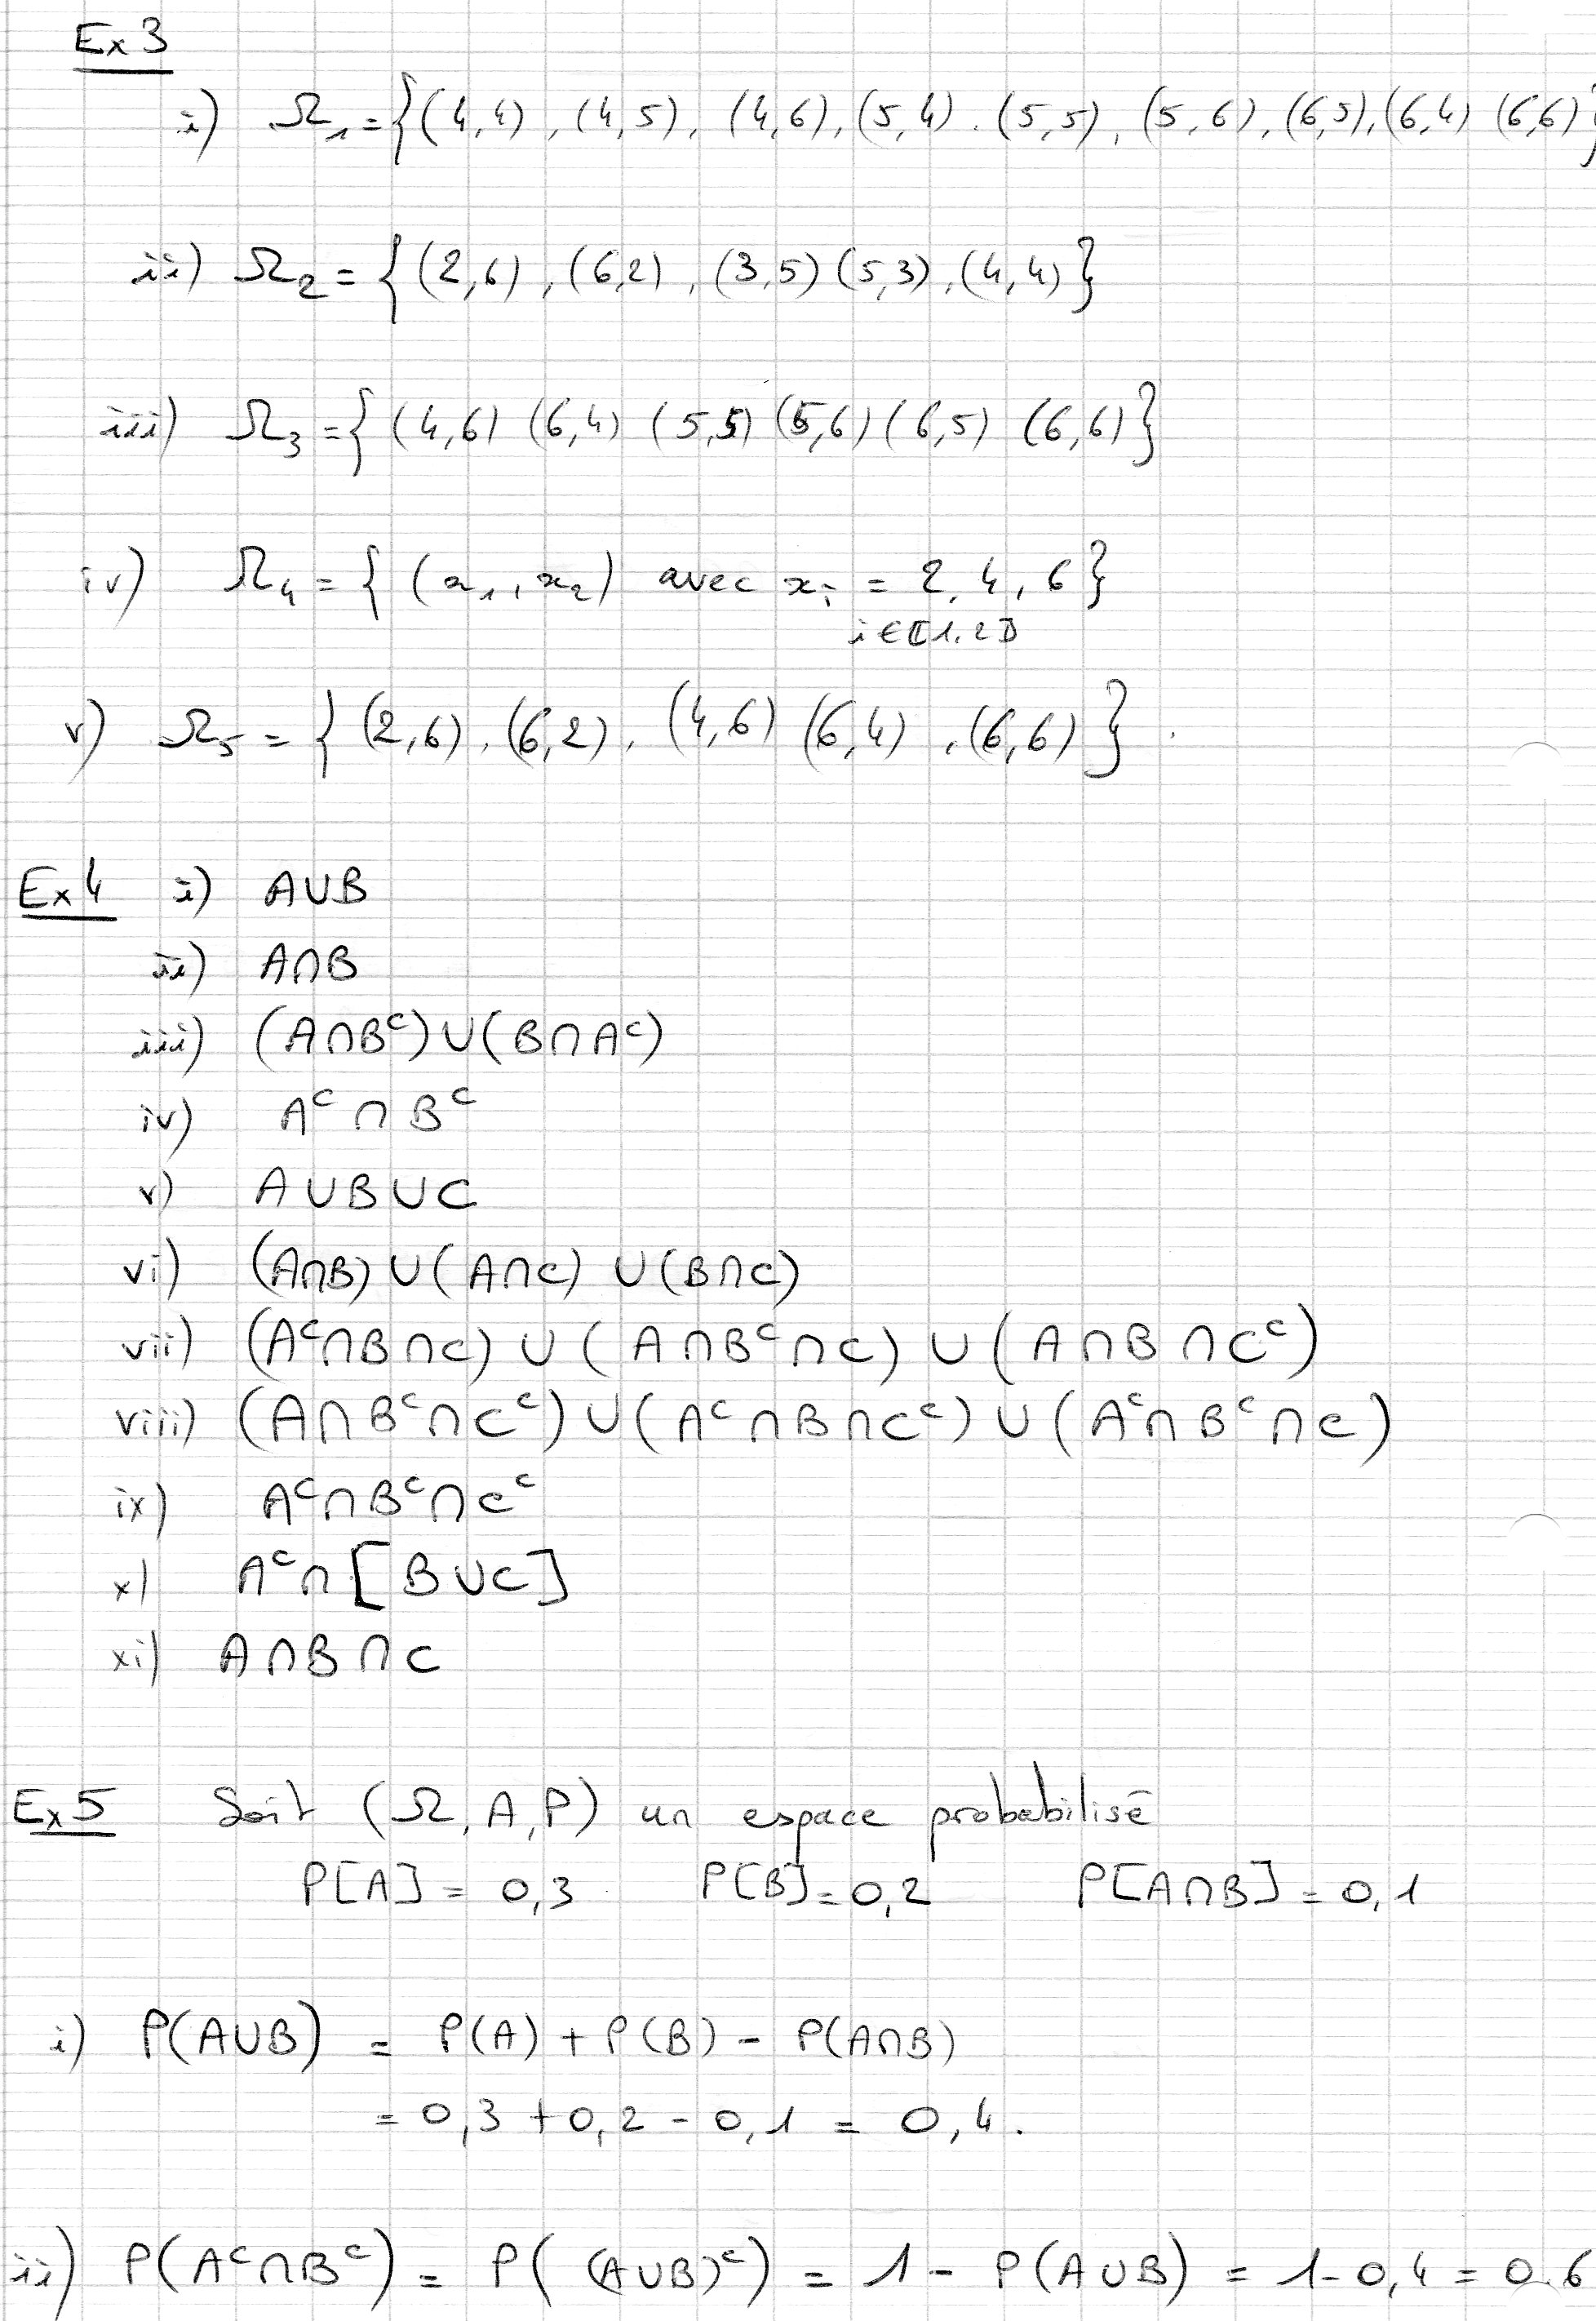 Ex 3
i) Ω₁ = {(4,4), (4,5), (4,6), (5,4), (5,5), (5,6), (6,5), (6,4) (6,6)}
ii) Ω₂ = {(2,6), (6,2), (3,5) (5,3), (4,4)}
iii) Ω₃ = {(4,6) (6,4) (5,5) (5,6) (6,5) (6,6)}
iv) Ω₄ = {(x₁, x₂) avec xᵢ = 2, 4, 6}
i ∈ ⟦1,2⟧
v) Ω₅ = {(2,6), (6,2), (4,6) (6,4), (6,6)}.
Ex 4 i) A∪B
ii) A∩B
iii) (A∩Bᶜ)∪(B∩Aᶜ)
iv) Aᶜ∩Bᶜ
v) A∪B∪C
vi) (A∩B)∪(A∩C)∪(B∩C)
vii) (Aᶜ∩B∩C)∪(A∩Bᶜ∩C)∪(A∩B∩Cᶜ)
viii) (A∩Bᶜ∩Cᶜ)∪(Aᶜ∩B∩Cᶜ)∪(Aᶜ∩Bᶜ∩C)
ix) Aᶜ∩Bᶜ∩Cᶜ
x) Aᶜ∩[B∪C]
xi) A∩B∩C
Ex 5 Soit (Ω, A, P) un espace probabilisé
P[A] = 0,3 P[B] = 0,2 P[A∩B] = 0,1
i) P(A∪B) = P(A) + P(B) - P(A∩B)
= 0,3 + 0,2 - 0,1 = 0,4.
ii) P(Aᶜ∩Bᶜ) = P((A∪B)ᶜ) = 1 - P(A∪B) = 1 - 0,4 = 0.6